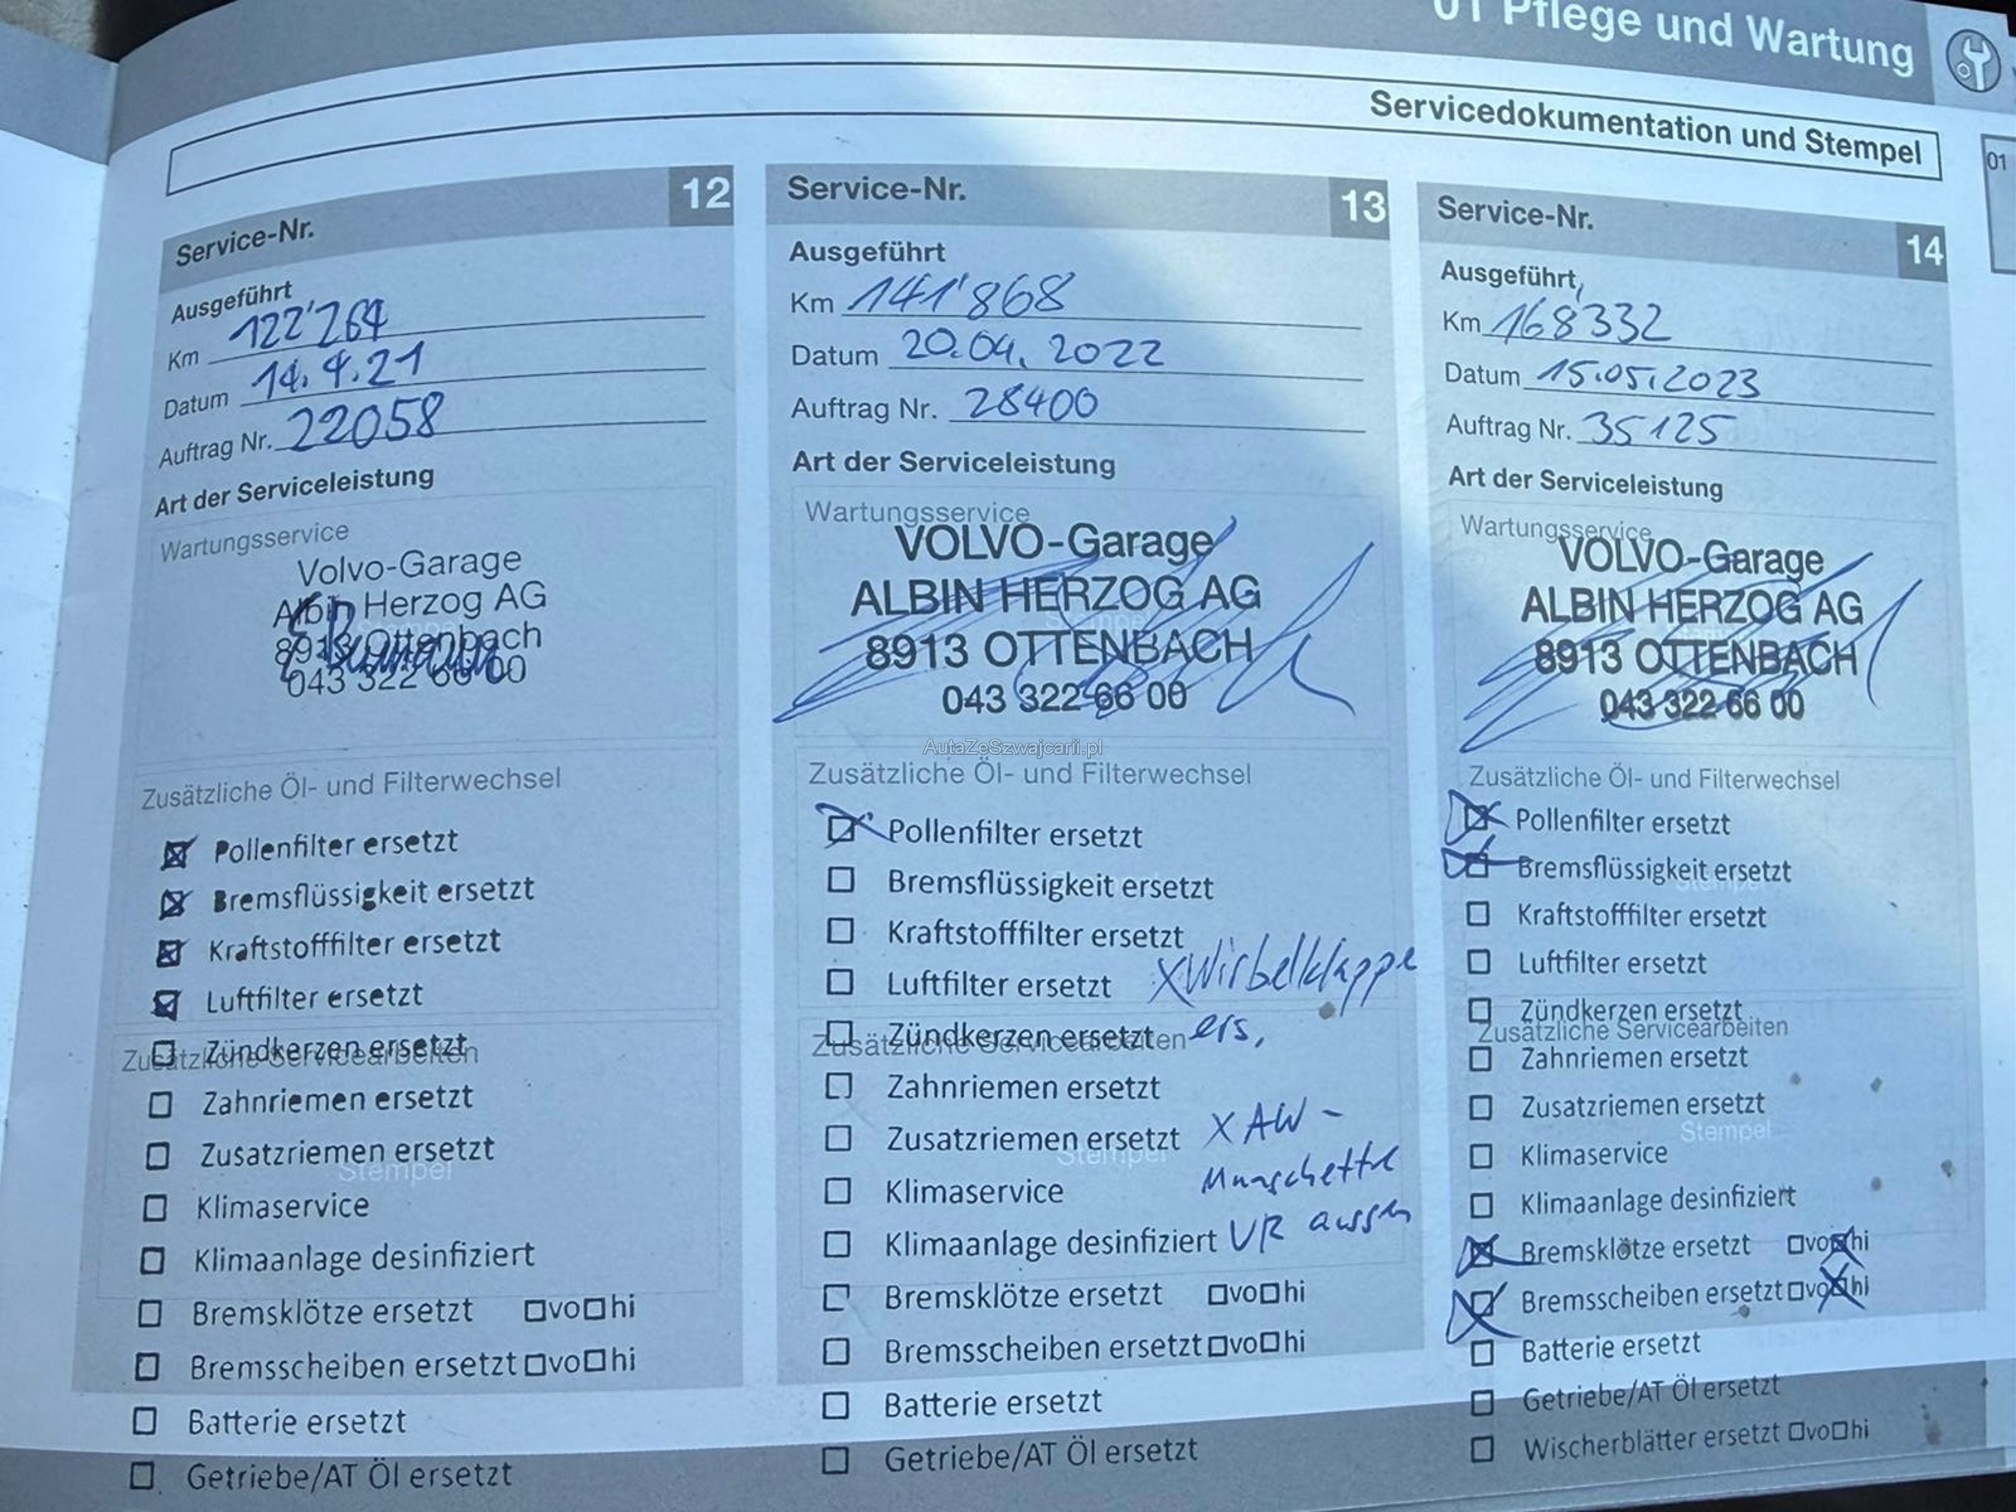 01 Pflege und Wartung
Servicedokumentation und Stempel
01
Service-Nr. 12
Ausgeführt
Km 122'264
Datum 14.4.21
Auftrag Nr. 22058
Art der Serviceleistung
Wartungsservice
Volvo-Garage
Albin Herzog AG
8913 Ottenbach
043 322 66 00
Zusätzliche Öl- und Filterwechsel
Pollenfilter ersetzt
Bremsflüssigkeit ersetzt
Kraftstofffilter ersetzt
Luftfilter ersetzt
Zündkerzen ersetzt
Zusätzliche Servicearbeiten
Zahnriemen ersetzt
Zusatzriemen ersetzt
Stempel
Klimaservice
Klimaanlage desinfiziert
Bremsklötze ersetzt □vo□hi
Bremsscheiben ersetzt□vo□hi
Batterie ersetzt
Getriebe/AT Öl ersetzt
Service-Nr. 13
Ausgeführt
Km 141'868
Datum 20.04.2022
Auftrag Nr. 28400
Art der Serviceleistung
Wartungsservice
VOLVO-Garage
ALBIN HERZOG AG
Stempel
8913 OTTENBACH
043 322 66 00
AutaZeSzwajcarii.pl
Zusätzliche Öl- und Filterwechsel
Pollenfilter ersetzt
Bremsflüssigkeit ersetzt
Kraftstofffilter ersetzt
Luftfilter ersetzt X Wirbelklappe
Zündkerzen ersetzt ers.
Zusätzliche Servicearbeiten
Zahnriemen ersetzt
Zusatzriemen ersetzt X AW-
Stempel
Klimaservice Manschette
Klimaanlage desinfiziert VR aussen
Bremsklötze ersetzt □vo□hi
Bremsscheiben ersetzt□vo□hi
Batterie ersetzt
Getriebe/AT Öl ersetzt
Service-Nr. 14
Ausgeführt
Km 168332
Datum 15.05.2023
Auftrag Nr. 35125
Art der Serviceleistung
Wartungsservice
VOLVO-Garage
ALBIN HERZOG AG
8913 OTTENBACH
043 322 66 00
Zusätzliche Öl- und Filterwechsel
Pollenfilter ersetzt
Bremsflüssigkeit ersetzt
Stempel
Kraftstofffilter ersetzt
Luftfilter ersetzt
Zündkerzen ersetzt
Zusätzliche Servicearbeiten
Zahnriemen ersetzt
Zusatzriemen ersetzt
Stempel
Klimaservice
Klimaanlage desinfiziert
Bremsklötze ersetzt □vo☒hi
Bremsscheiben ersetzt□vo☒hi
Batterie ersetzt
Getriebe/AT Öl ersetzt
Wischerblätter ersetzt □vo□hi